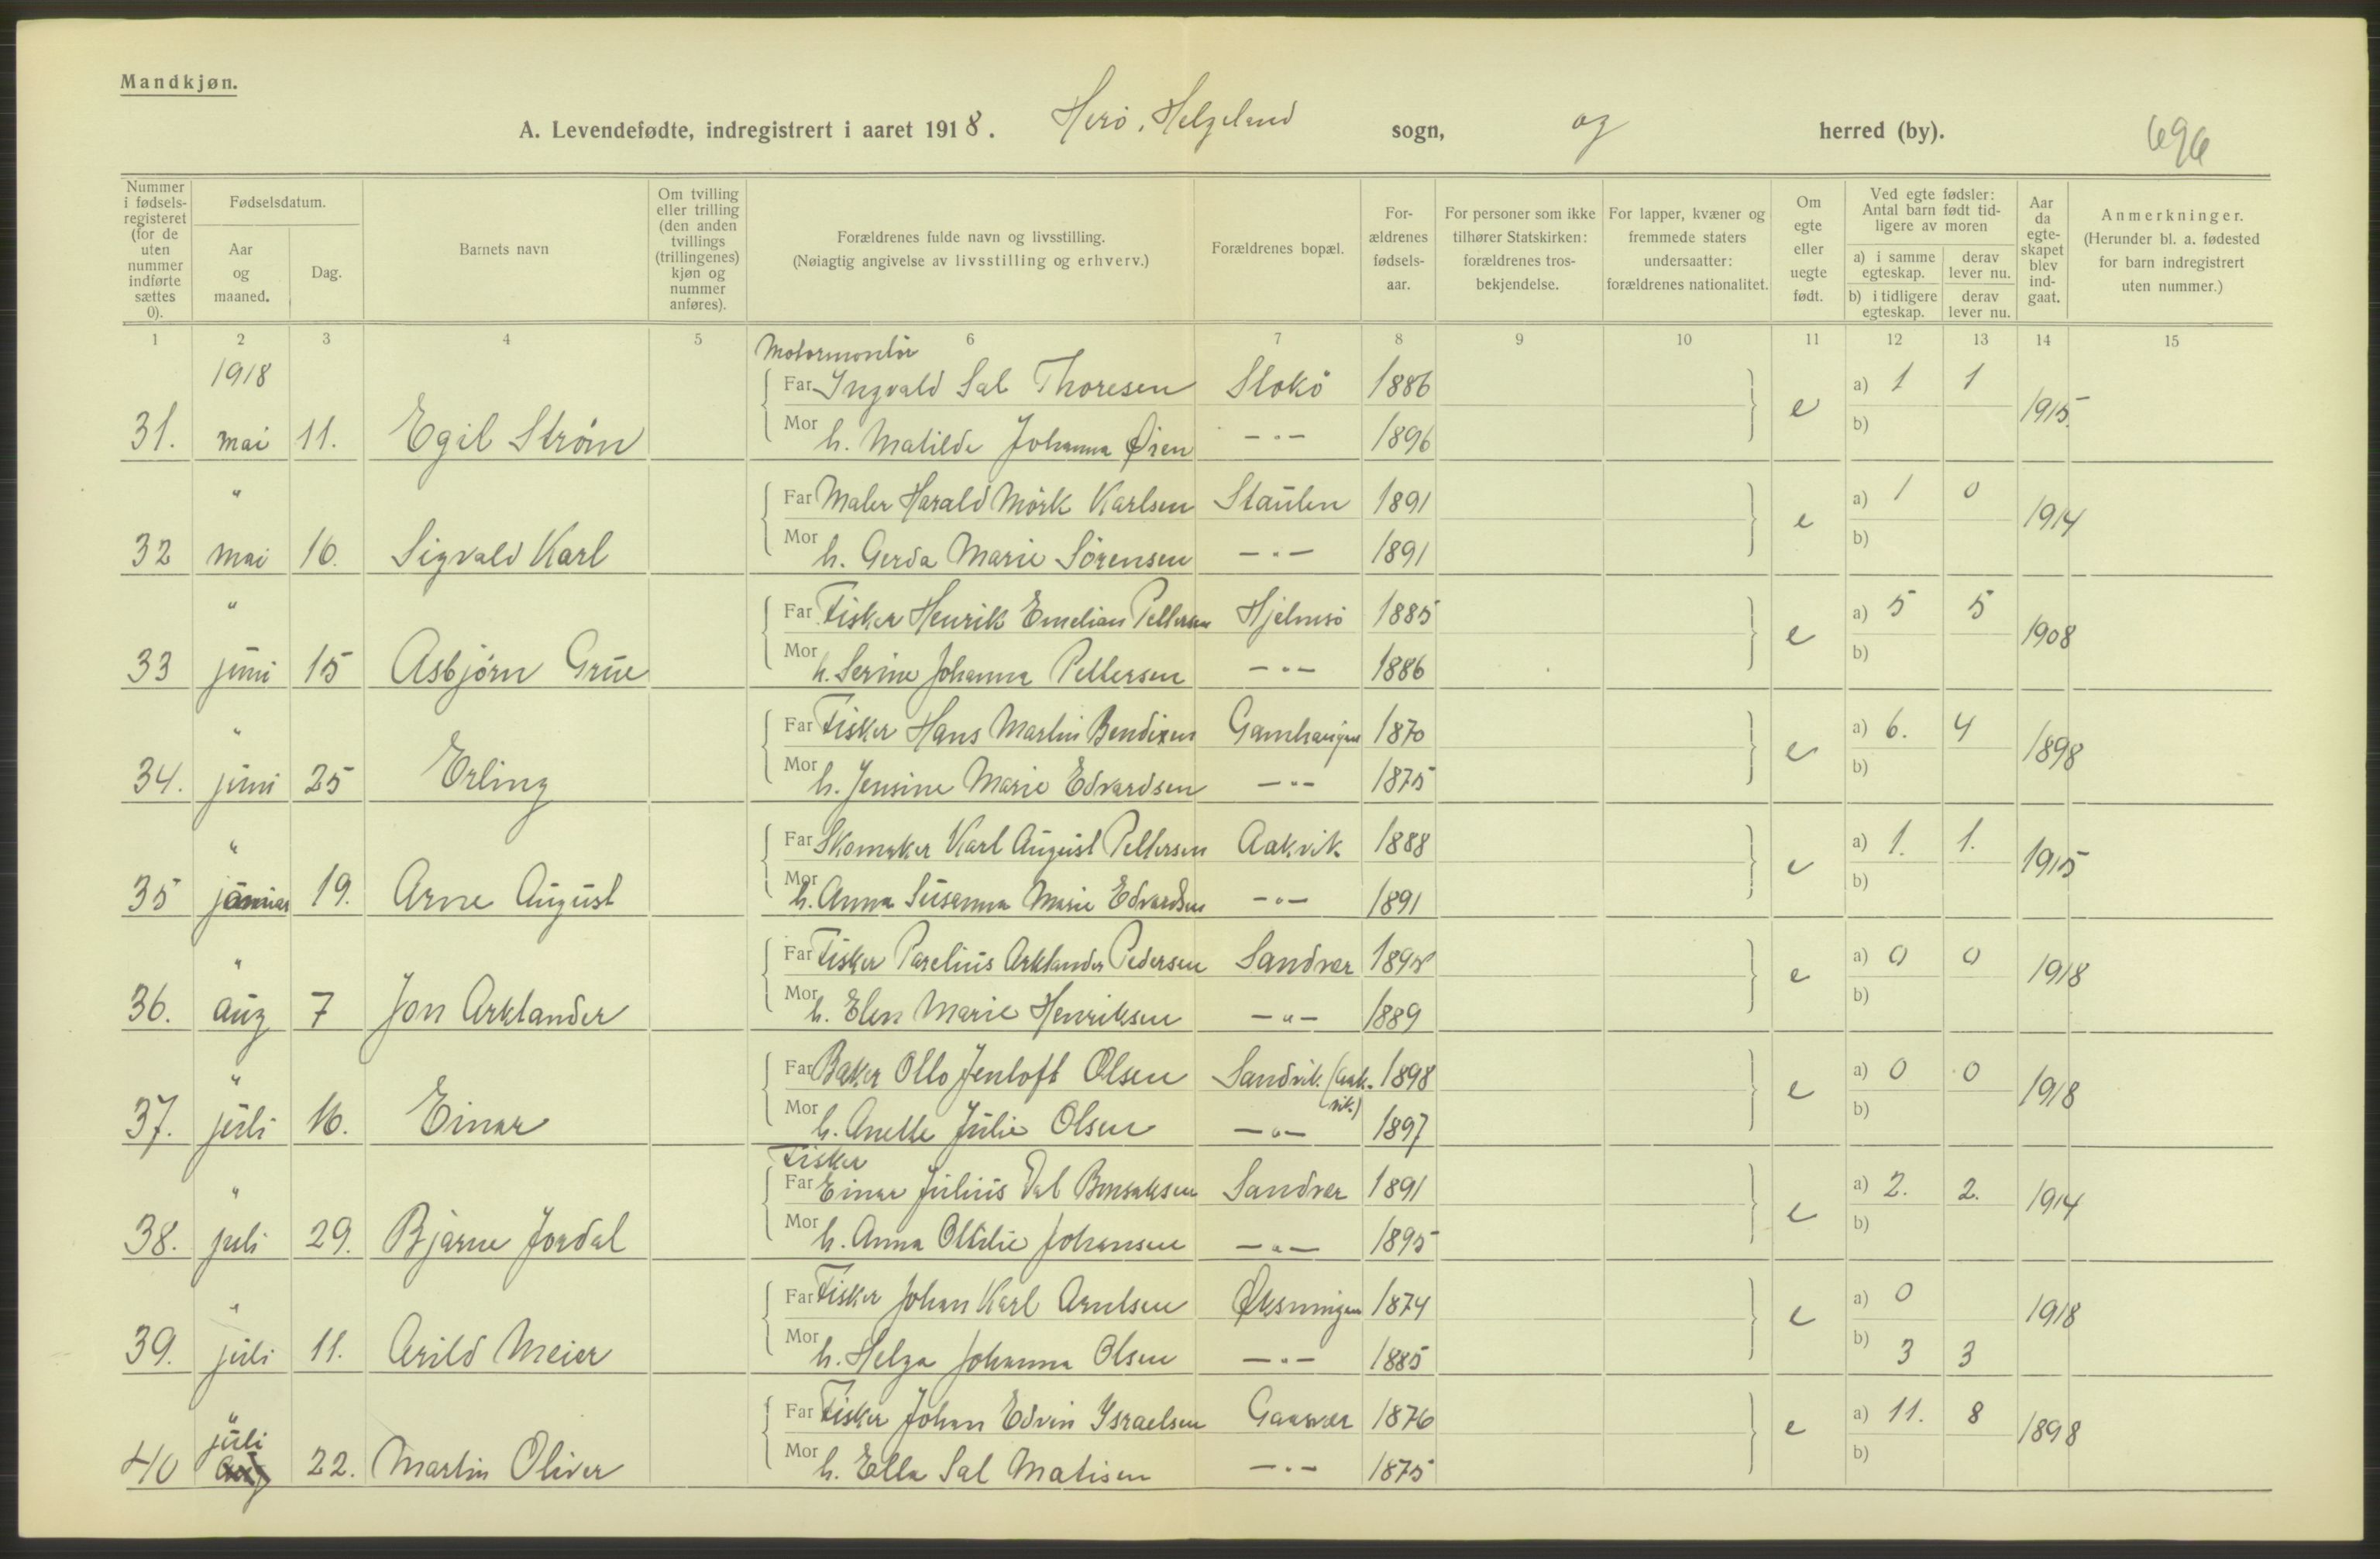 Mandkjøn.
A. Levendefødte, indregistrert i aaret 1918. Herö, Helgeland sogn, og herred (by). 696
Nummer i fødsels-registeret (for de uten nummer indførte sættes 0).
Fødselsdatum.
Aar og maaned.
Dag.
Barnets navn
Om tvilling eller trilling (den anden tvillings (trillingenes) kjøn og nummer anføres).
Forældrenes fulde navn og livsstilling.
(Nøiagtig angivelse av livsstilling og erhverv.)
Forældrenes bopæl.
For-ældrenes fødsels-aar.
For personer som ikke tilhører Statskirken: forældrenes tros-bekjendelse.
For lapper, kvæner og fremmede staters undersaatter: forældrenes nationalitet.
Om egte eller uegte født.
Ved egte fødsler: Antal barn født tid-ligere av moren
a) i samme egteskap. derav lever nu.
b) i tidligere egteskap. derav lever nu.
Aar da egte-skapet blev ind-gaat.
Anmerkninger.
(Herunder bl. a. fødested for barn indregistrert uten nummer.)
1 2 3 4 5 6 7 8 9 10 11 12 13 14 15
1918 Motormontör
Far Ingvald Sal Thoresen Stokö 1886 a) 1 1
31. mai 11. Egil Ström Mor h. Matilde Johanna Øien —"— 1896 e b) 1915.
" Far Maler Harald Mörk Karlsen Staulen 1891 a) 1 0
32 mai 16. Sigvald Karl Mor h. Gerda Marie Sörensen —"— 1891 e b) 1914
" Far Fisker Henrik Emelian Pettersen Hjelmsö 1885 a) 5 5
33 juni 15 Asbjörn Grue Mor h. Serine Johanna Pettersen —"— 1886 e b) 1908
" Far Fisker Hans Martin Bendixen 1870 a) 6. 4
34. juni 25 Erling Mor h. Jensine Marie Edvardsen —"— 1875 e b) 1898
" Far Skomaker Karl August Pettersen Aakvik 1888 a) 1. 1.
35 januar 19. Arne August Mor h. Anna Susanna Marie Edvardsen —"— 1891 e b) 1915
" Far Fisker Parelius Arklander Pedersen Sandvær 1895 a) 0 0
36. aug 7 Jon Arklander Mor h. Elen Marie Henriksen —"— 1889 e b) 1918
" Far Baker Otto Jentoft Olsen Sandvik (Aak-vik.) 1898 a) 0 0
37. juli 16. Einar Mor h. Anette Julie Olsen —"— 1897 e b) 1918
Fisker
" Far Einar Julius Dal Bensaksen Sandvær 1891 a) 2. 2.
38. juli 29. Bjarne Jordal Mor h. Anna Ottilie Johansen —"— 1895 e b) 1914
" Far Fisker Johan Karl Arntsen Øksningen 1874 a) 0
39. juli 11. Arild Meier Mor h. Helga Johanna Olsen —"— 1885 e b) 3 3 1918
" Far Fisker Johan Edvin Israelsen Gaasvær 1876 a) 11. 8
juli
40 aug 22. Martin Oliver Mor h. Ella Sal Matisen —"— 1875 e b) 1898